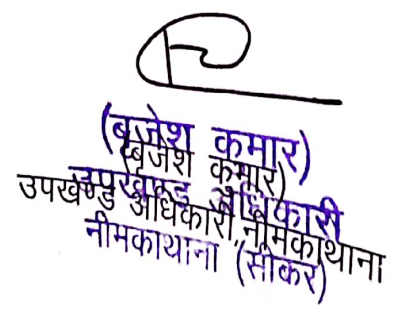 (बृजेश कुमार)
(बृजेश कुमार)
उपखण्ड अधिकारी
उपखण्ड अधिकारी, नीमकाथाना
नीमकाथाना (सीकर)